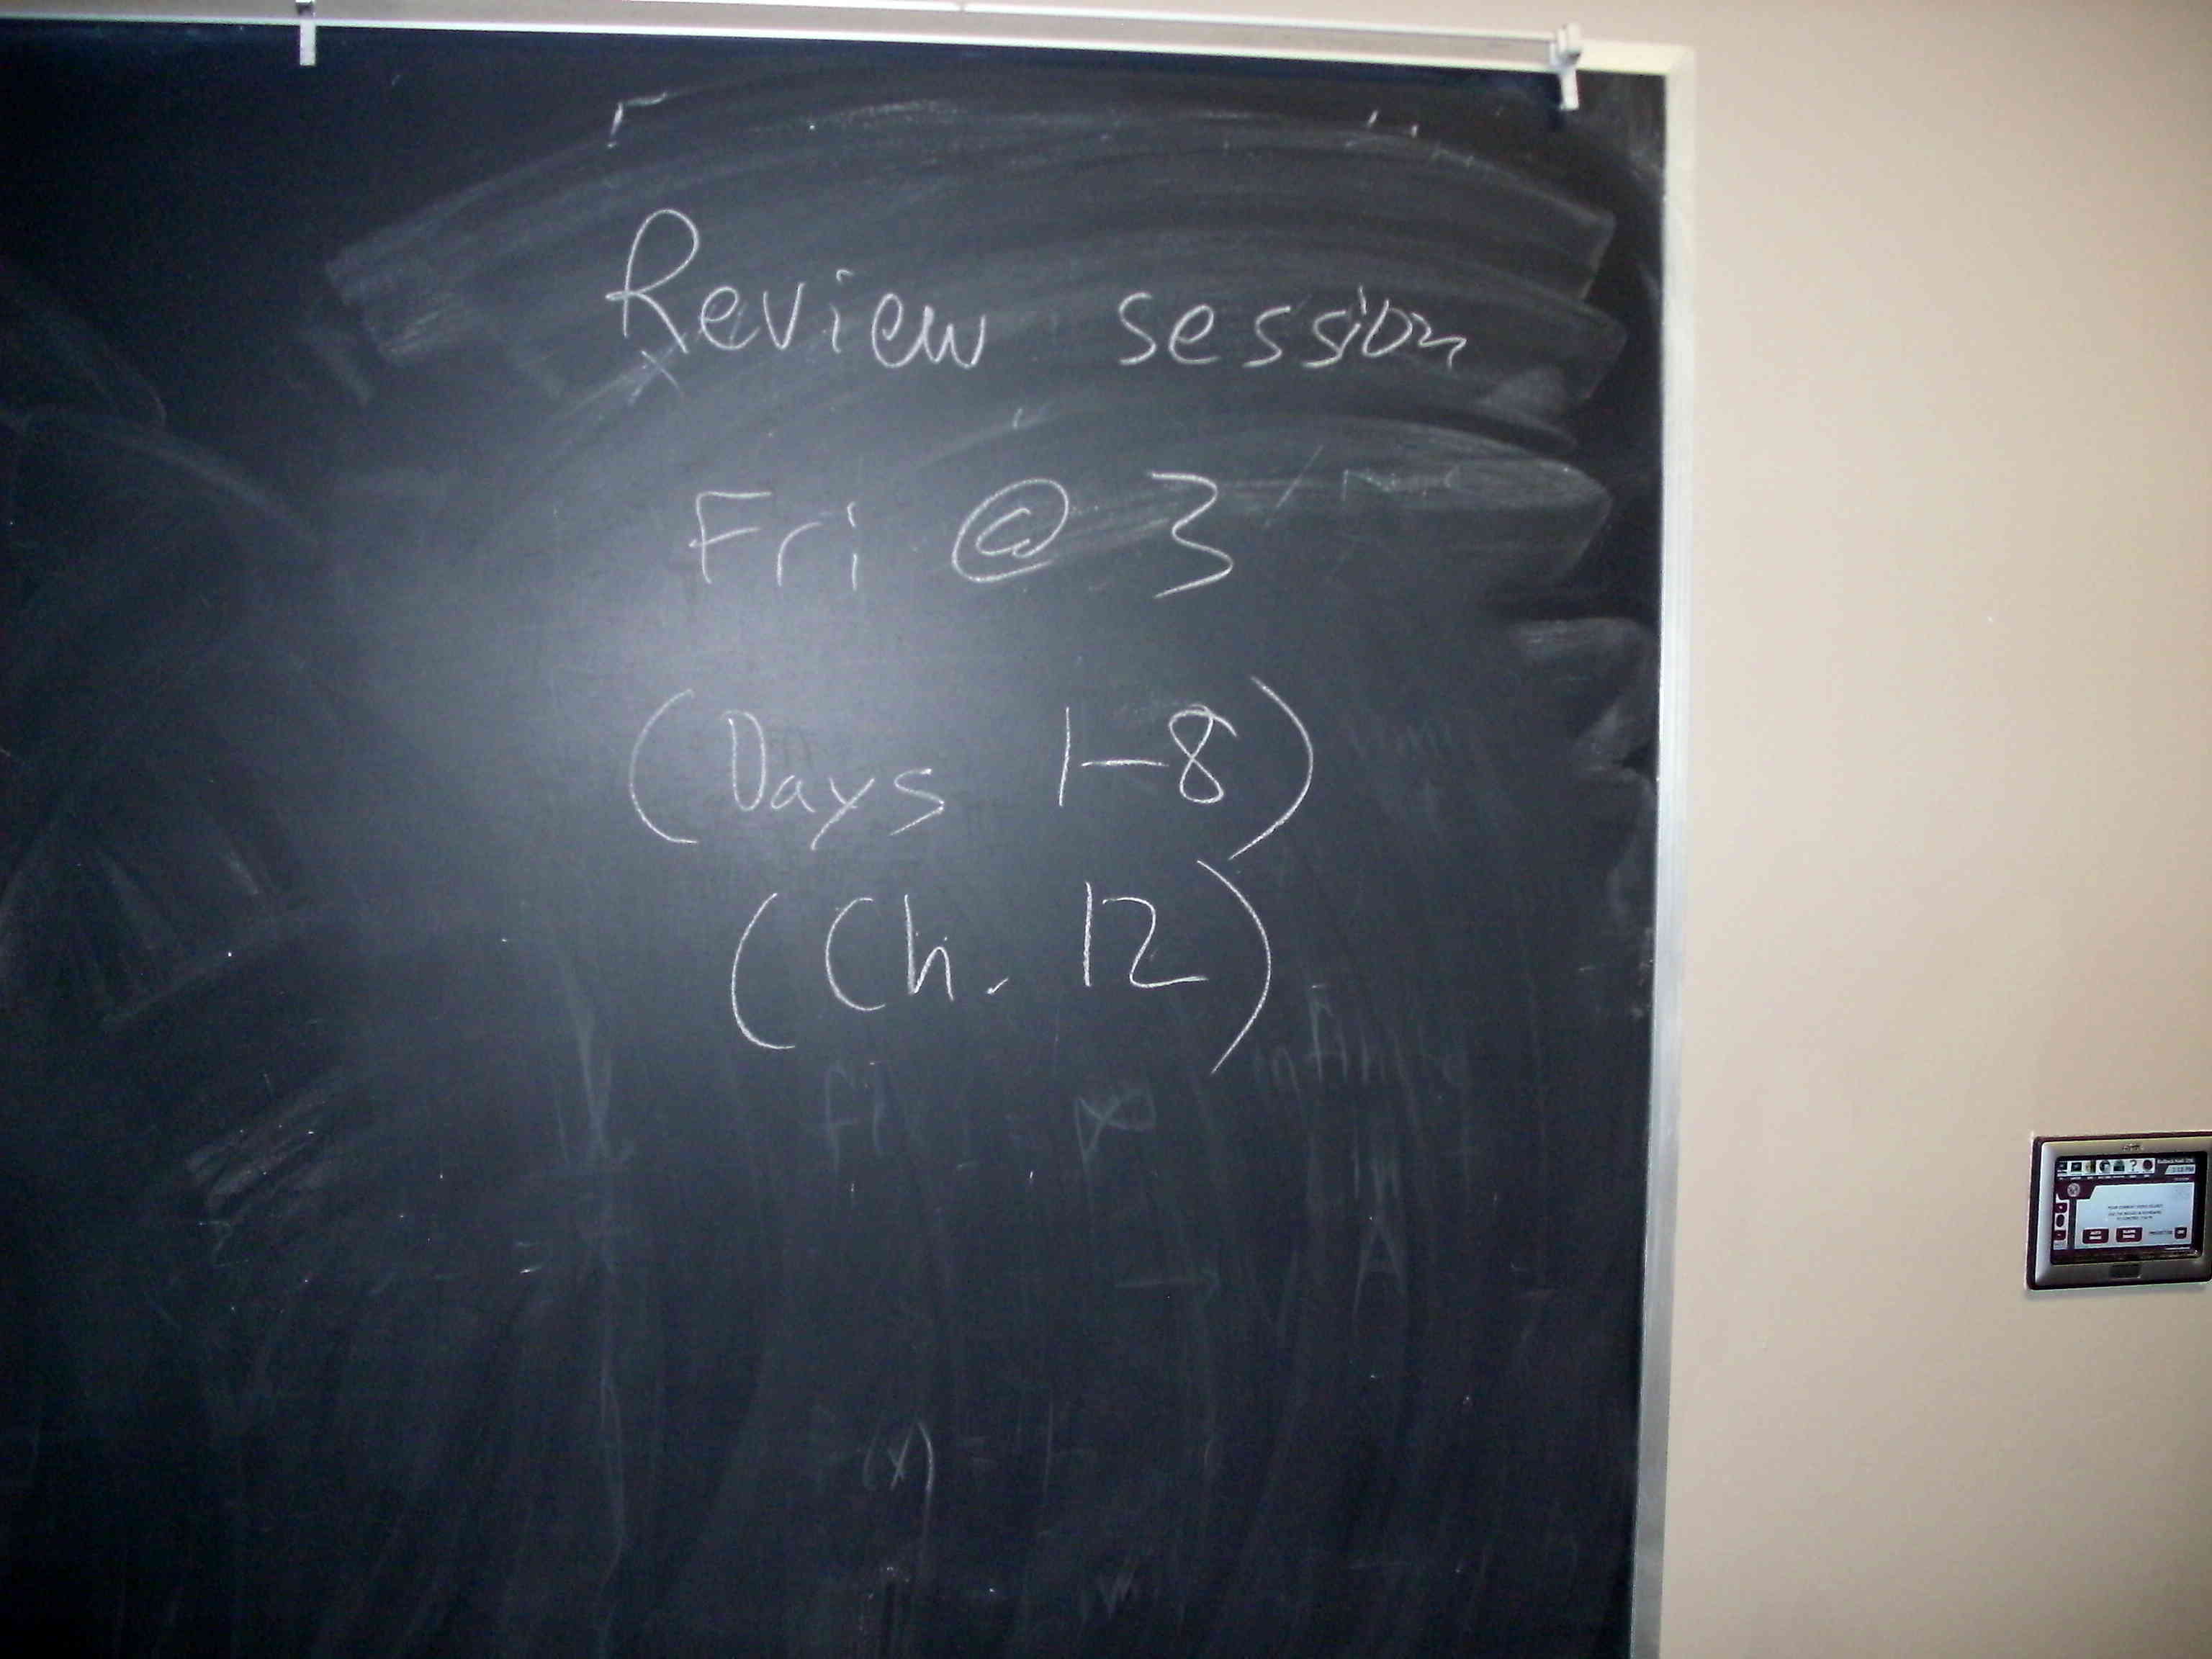 Review session
Fri @ 3
(Days 1-8)
(Ch. 12)
(x)